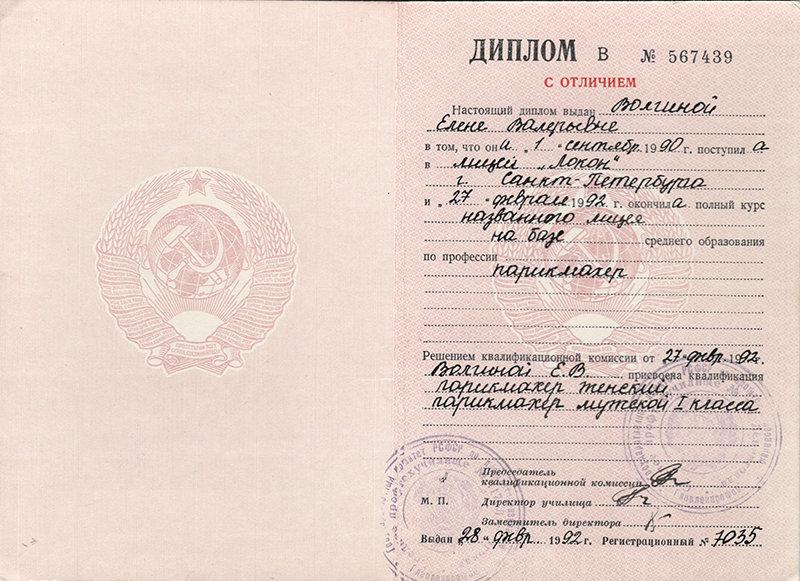 ДИПЛОМ В № 567439
С ОТЛИЧИЕМ
Настоящий диплом выдан Волгиной
Елене Валерьевне
в том, что она „1“ сентябр. 1990 г. поступила
в лицей „Локон“
г. Санкт-Петербурга
и „27“ февраля 1992 г. окончила полный курс
названного лицея
на базе среднего образования
по профессии
парикмахер
Решением квалификационной комиссии от 27 февр. 1992.
Волгиной Е. В. присвоена квалификация
парикмахер женский,
парикмахер мужской I класса
Председатель
квалификационной комиссии
М. П. Директор училища
Заместитель директора
Выдан „28“ февр. 1992 г. Регистрационный № 7035